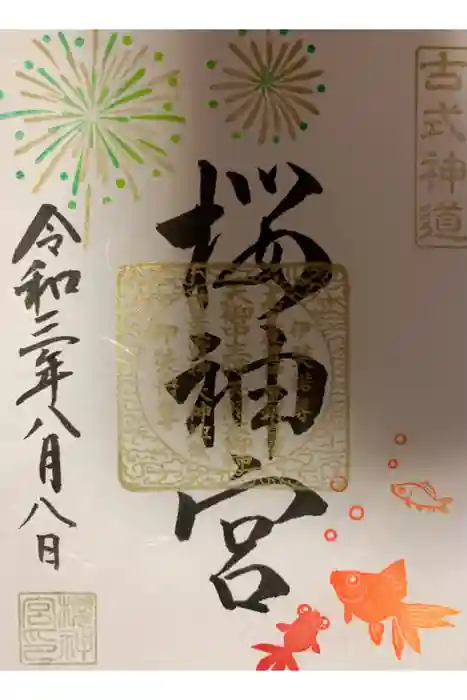 古式神道
桜神宮
令和三年八月八日
桜神
宮印